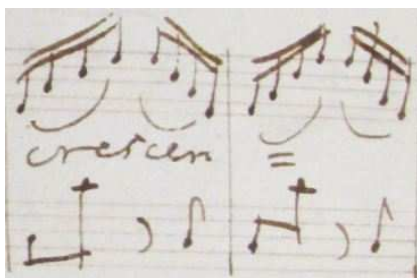 crescen =